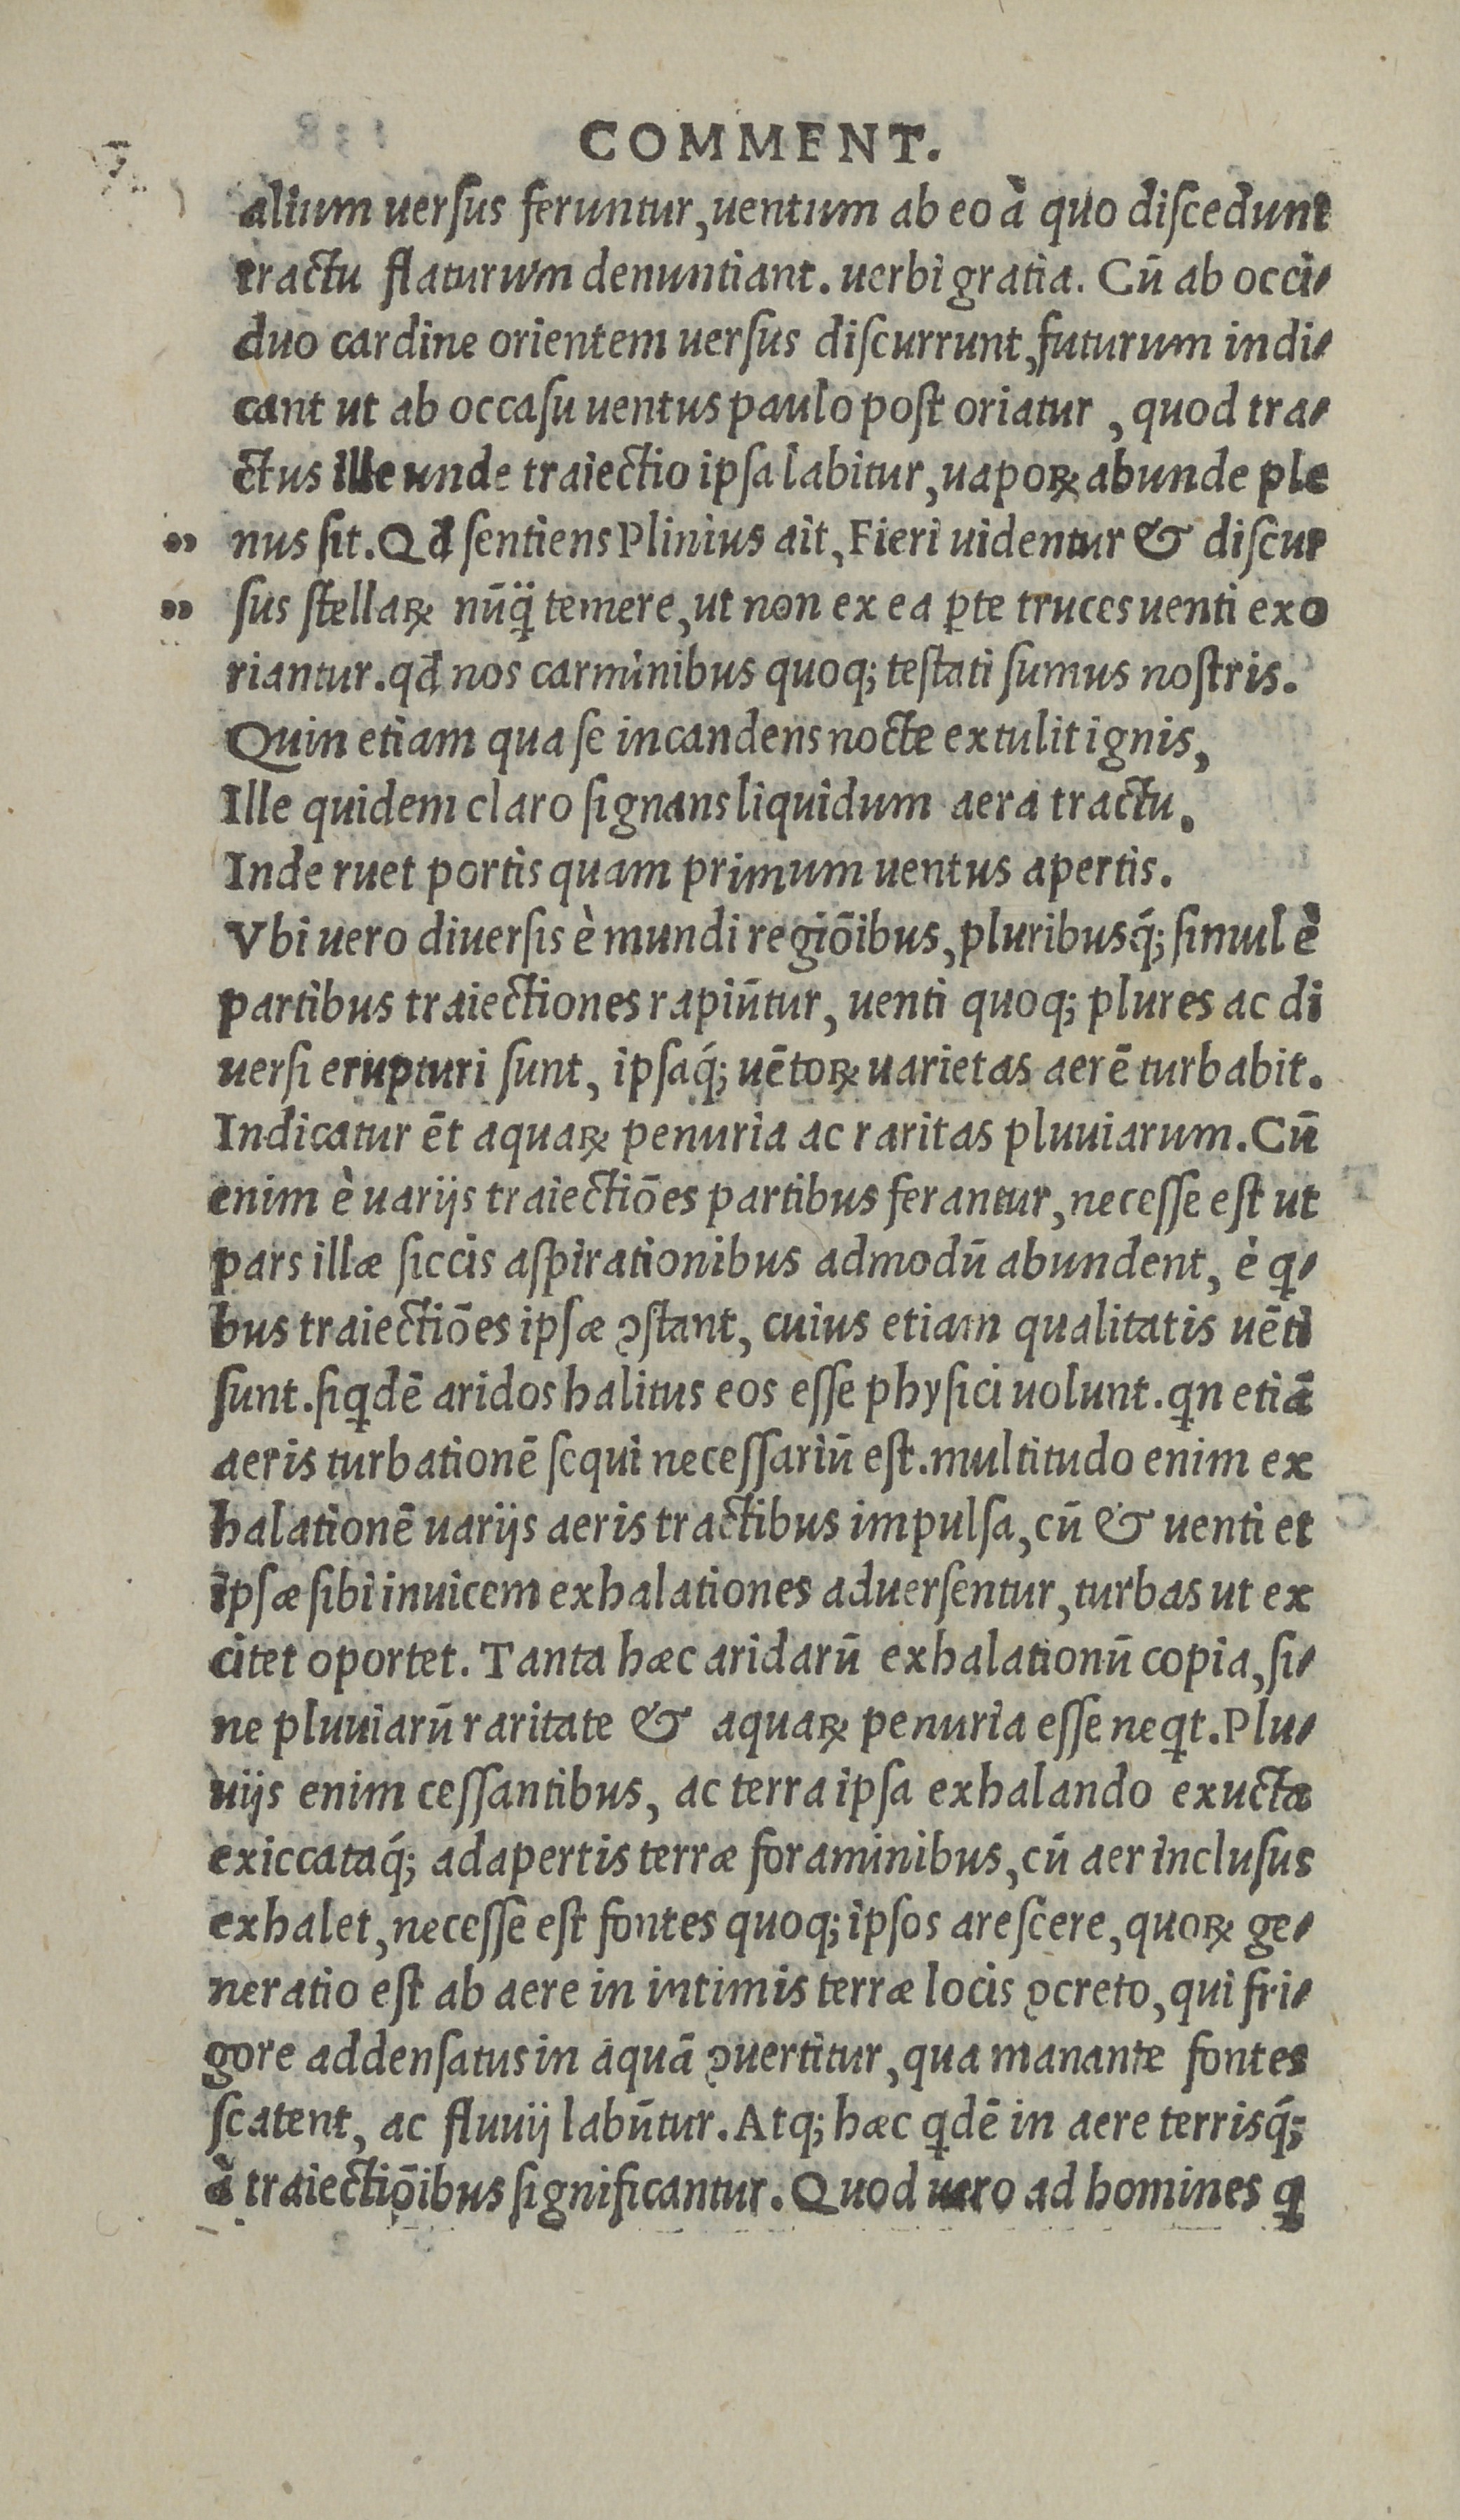 COMMENT.
alium uersus feruntur, uentum ab eo à quo discedunt
tractu flaturum denuntiant. uerbi gratia. Cū ab occi-
duo cardine orientem uersus discurrunt, futurum indi-
cant ut ab occasu uentus paulo post oriatur, quod tra-
ctus ille unde traiectio ipsa labitur, uapoꝝ abunde ple
„ nus sit. Qđ sentiens Plinius ait, Fieri uidentur & discur
„ sus stellaꝝ nūꝗ̃ temere, ut non ex ea ꝑte truces uenti exo
riantur. qđ nos carminibus quoq; testati sumus nostris.
Quin etiam qua se incandens nocte extulit ignis,
Ille quidem claro signans liquidum aera tractu.
Inde ruet portis quam primum uentus apertis.
Vbi uero diuersis è mundi regiōibus, pluribusq́; simul è
partibus traiectiones rapiūtur, uenti quoq; plures ac di
uersi erupturi sunt, ipsaq́; uētoꝝ uarietas aerē turbabit.
Indicatur ēt aquaꝝ penuria ac raritas pluuiarum. Cū
enim è uarijs traiectiōes partibus ferantur, necesse est ut
pars illæ siccis aspirationibus admodū abundent, è ꝗ-
bus traiectiōes ipsæ ꝯstant, cuius etiam qualitatis uēti
sunt. siꝗdē aridos halitus eos esse physici uolunt. ꝗn etiā
aeris turbationē sequi necessariū est. multitudo enim ex
halationē uarijs aeris tractibus impulsa, cū & uenti et
ipsæ sibi inuicem exhalationes aduersentur, turbas ut ex
citet oportet. Tanta hæc aridarū exhalationū copia, si-
ne pluuiarū raritate & aquaꝝ penuria esse neꝗt. Plu-
uijs enim cessantibus, ac terra ipsa exhalando exucta
exiccataq́; adapertis terræ foraminibus, cū aer inclusus
exhalet, necesse est fontes quoq; ipsos arescere, quoꝝ ge-
neratio est ab aere in intimis terræ locis ꝯcreto, qui fri-
gore addensatus in aquā ꝯuertitur, qua manante fontes
scatent, ac fluuij labūtur. Atq; hæc ꝗdē in aere terrisq́;
à traiectiōibus significantur. Quod uero ad homines ꝗ